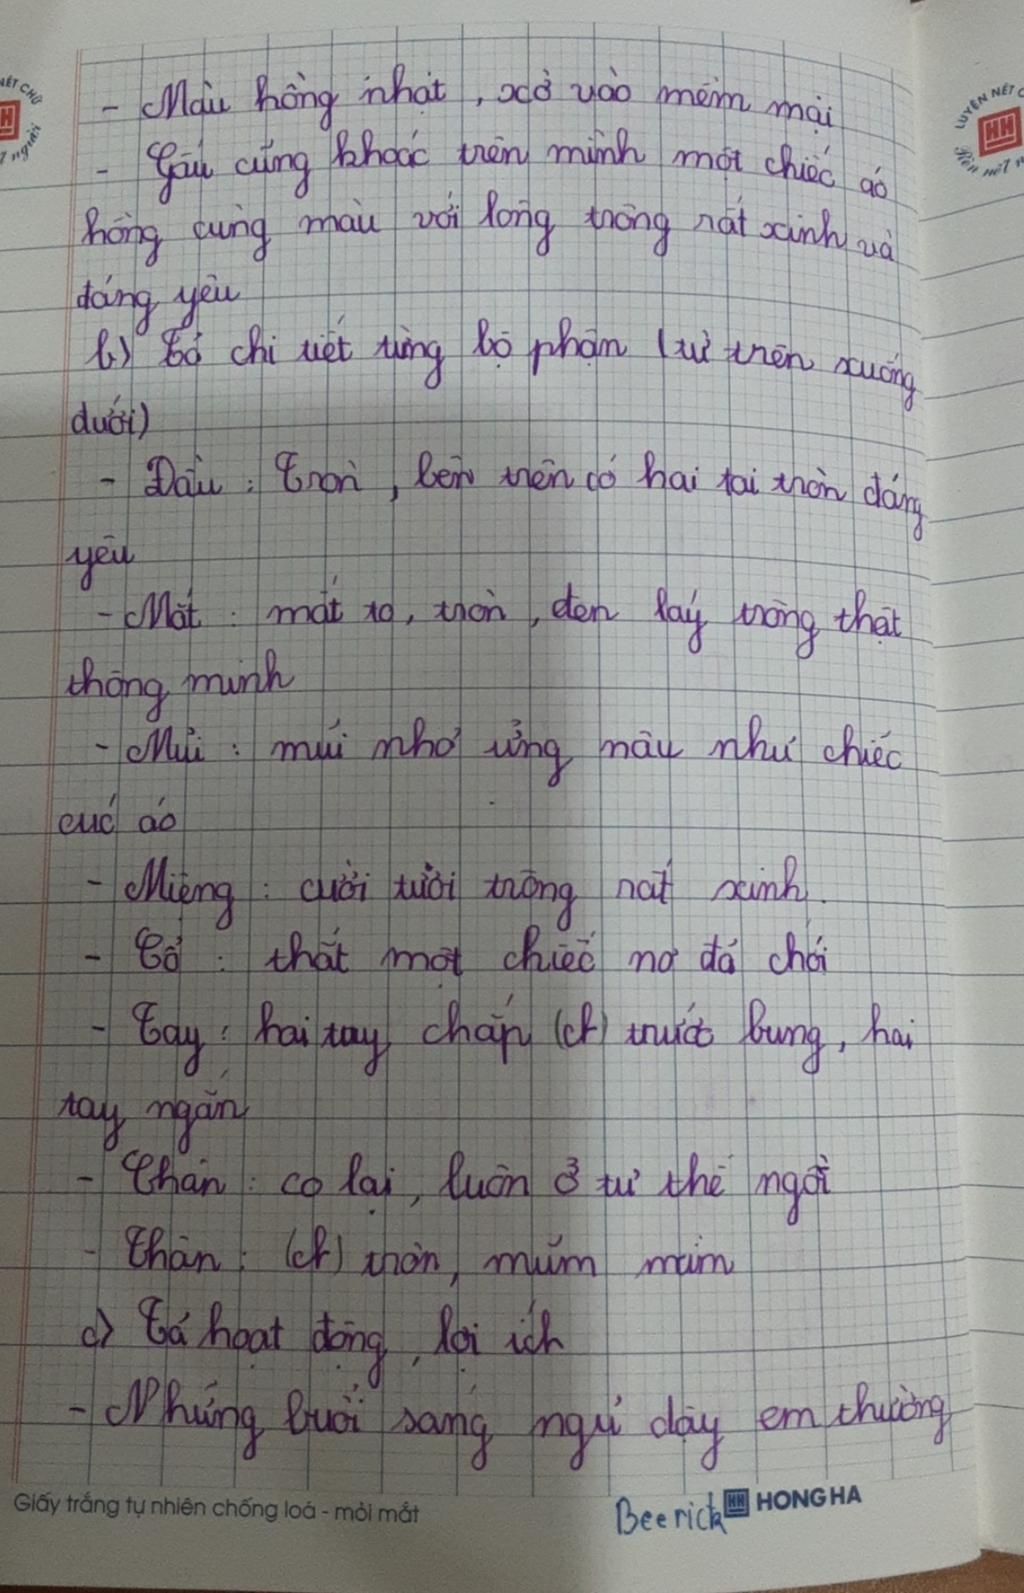 - Màu hồng nhạt, sờ vào mềm mại
- Gấu cũng khoác trên mình một chiếc áo
hồng cùng màu với lông trông rất xinh và
đáng yêu
b) Tả chi tiết từng bộ phận (từ trên xuống
dưới)
- Đầu : Tròn, bên trên có hai tai tròn đáng
yêu
- Mắt : mắt to, tròn, đen láy trông thật
thông minh
- Mũi : mũi nhỏ ửng nâu như chiếc
cúc áo
- Miệng : cười tười trông rất xinh.
- Cổ : thắt một chiếc nơ đỏ chói
- Tay : hai tay chắp (ch) trước bụng, hai
tay ngắn
- Chân : co lại, luôn ở tư thế ngồi
- Thân : (ch) tròn, mũm mĩm
c) Tả hoạt động, lợi ích
- Những buổi sáng ngủ dậy em thường
Giấy trắng tự nhiên chống loá - mỏi mắt
Beerick HH HONG HA
NÉT CHỮ
H
LUYỆN NÉT
HH